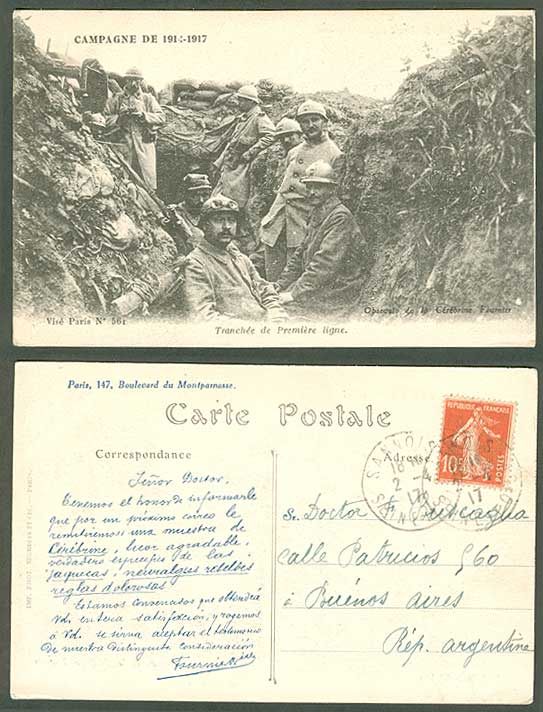 CAMPAGNE DE 1914-1917
Visé Paris N° 561
Obsequio de la Cérébrine Fournier
Tranchée de Première ligne.
Paris, 147, Boulevard du Montparnasse.
Carte Postale
Correspondance
Adresse
REPUBLIQUE FRANÇAISE
10c
POSTES
SANNOIS
2 -4
17
Señor Doctor.
Tenemos el honor de informarle
que por un próximo correo le
remitiremos una muestra de
Cérébrine, licor agradable,
verdadero específico de las
jaquecas, neuralgies rebeldes
reglas dolorosas.
Estamos convencidos que obtendrá
Vd. entera satisfacción, y rogamos
á Vd. se sirva aceptar el testimonio
de nuestra distinguida consideración
Fournier
S. Doctor F.
calle Patricios 560
à Buénos aires
Rép. argentine